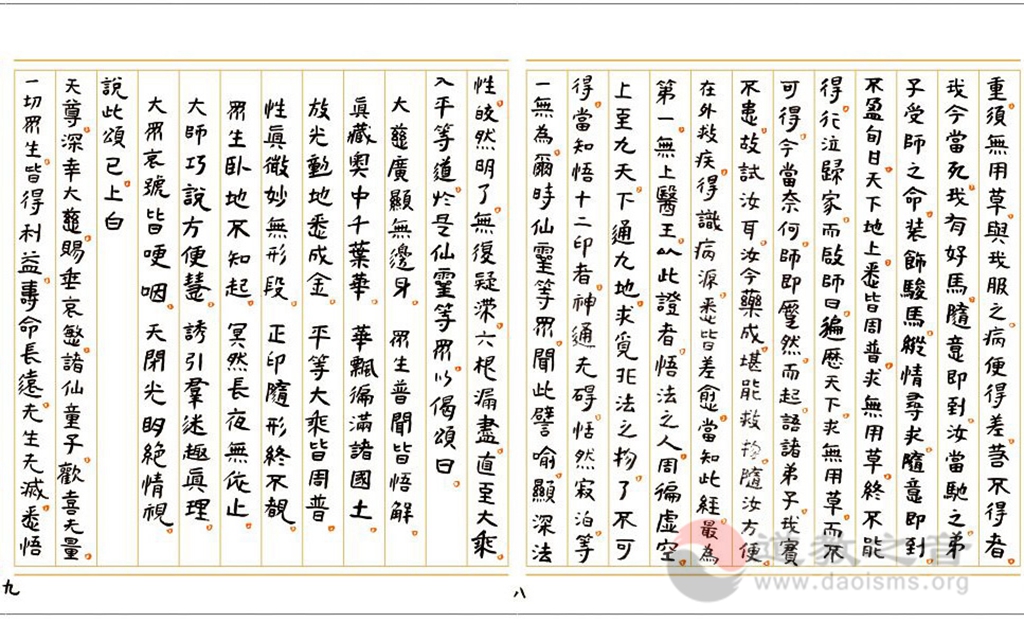 重須無用草與我服之病便得差若不得者
我今當死我有好馬隨意即到汝當馳之弟
子受師之命装飾駿馬縱情尋求隨意即到
不盈旬日天下地上悉皆周普求無用草終不能
得行泣歸家而啟師曰遍歷天下求無用草而不
可得今當奈何師即蹷然而起語諸弟子我實
不患故試汝耳汝今藥成堪能救物隨汝方便
在外救疾得識病源悉皆差愈當知此經最為
第一無上醫王以此證者悟法之人周徧虛空
上至九天下通九地求覓非法之物了不可
得當知悟十二印者神通无碍恬然寂泊等
一無為爾時仙靈等眾聞此譬喻顯深法
八
性皎然明了無復疑滞六根漏盡直至大乘
入平等道於是仙靈等眾以偈頌曰
大慈廣顯無邊身 眾生普聞皆悟解
真藏奧中千葉華 華飄徧滿諸國土
放光動地悉成金 平等大乘皆周普
性真微妙無形段 正印隨形終不覩
眾生卧地不知起 冥然長夜無依止
大師巧說方便慧 誘引羣迷趣真理
大眾哀號皆哽咽 天閉光明絕情視
說此頌已上白
天尊深幸大慈賜垂哀愍諸仙童子歡喜无量
一切眾生皆得利益壽命長遠无生无滅悉悟
九
道教之音
www.daoisms.org